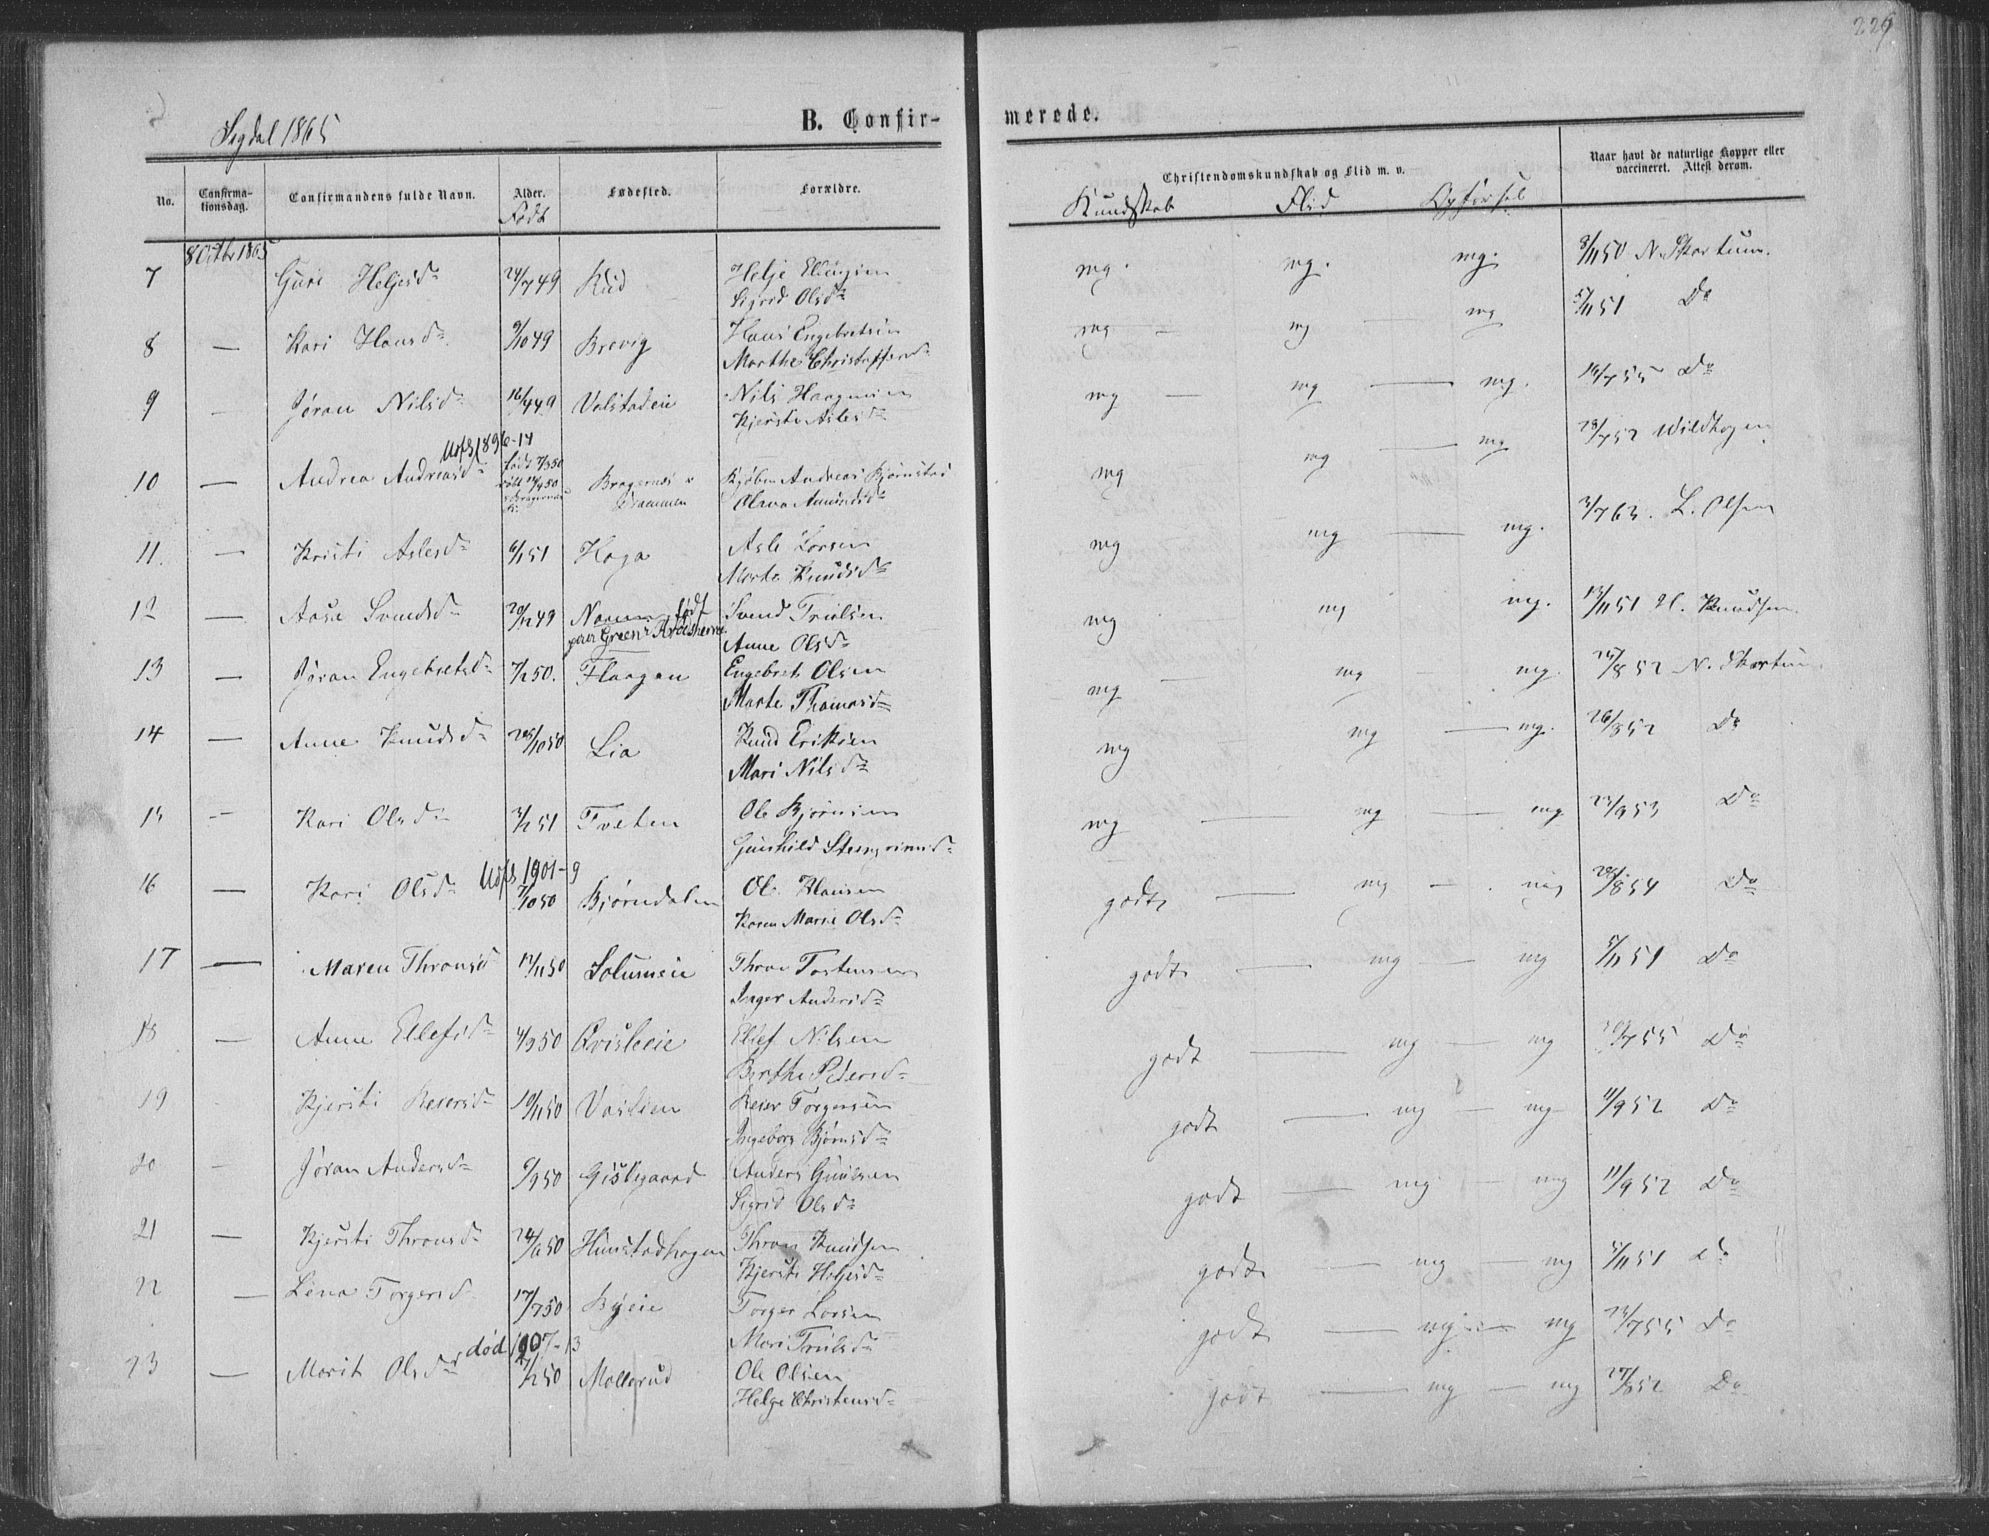 229
Sigdal 1865
B. Confir- merede.
No. Confirma-tionsdag. Confirmandens fulde Navn. Alder. Fødested. Forældre. Christendomskundskab og Flid m. v. Naar havt de naturlige Kopper eller vaccineret. Attest derom.
Født Kundskab Flid Opførsel
8 Octbr 1865
7 Guri Heljesd. 24/7 49 Rud Helje Ellingsen mg. mg. mg. 8/11 50 N. Skartum.
Sigrid Olsd.
8 — Kari Hansd. 9/10 49 Brevig Hans Engebretsen mg — mg — mg 5/11 51 Do
Marthe Christoffersd.
9 - Jøran Nilsd. 16/4 49 Valstadeie Nils Haagensen mg — mg — mg. 16/7 55 Do
Kjersti Aslesd.
Udfs 1896-14
10 — Andrea Andreasd. født 7/3 50 Bragernæs v Kjøbm Andreas Bjørnstad mg mg — mg 28/7 52 Wildhagen
Drammen Olava Amundsd.
11. — Kristi Aslesd. 6/1 51 Haga Asle Larsen mg mg — mg. 3/7 63. L. Olsen
Marte Knudsd.
12 — Aase Svendsd. 20/12 49 Narum, født Svend Trulsen mg mg mg. 13/11 51 H. Knudsen
Anne Olsd.
13 — Jøran Engebretsd. 7/2 50. Flaagan Engebret Olsen mg - mg - mg. 25/8 52 N. Skartum
Marte Thomasd.
14 — Anne Knudsd. 28/10 50 Lia Knud Eriksen mg — mg — mg. 26/8 52 Do
Mari Nilsd.
15 — Kari Olsd. 3/2 51 Tveten Ole Bjørnsen mg — mg — mg 23/9 53 Do
Gunhild Steengrimsd.
Udfs 1901-9
16 — Kari Olsd. 7/10 50 Bjørndalen Ole Hansen godt — mg — mg 28/8 54 Do
Karen Marie Olsd.
17 — Maren Thronsd. 17/11 50 Solumeie Thron Torstensen godt — mg — mg 5/11 51 Do
Inger Andersd.
18 — Anne Ellefsd. 4/9 50 Qvisleeie Ellef Nilsen godt — mg — mg 20/7 55 Do
Berthe Pedersd.
19 Kjersti Reiersd. 10/11 50 Vaslien Reier Torgersen godt — mg — mg 11/9 52 Do
Ingeborg Bjørnsd.
20 - Jøran Andersd. 6/9 50 Gislegaard Anders Gunlsen godt — mg — mg 11/9 52 Do
Sigrid Olsd.
21 — Kjersti Thronsd. 24/12 50 Hunstadhagen Thron Knudsen godt — mg — mg 5/11 51 Do
Kjersti Heljesd.
22 — Lena Torgersd. 17/7 50 Byeie Torger Larsen godt — mg — mg 23/7 55 Do
Mari Trulsd.
død 1907-13
23 — Marit Olsd. 7/12 50 Mollerud Ole Olsen godt — mg — mg 27/8 52 Do
Helge Christensd.